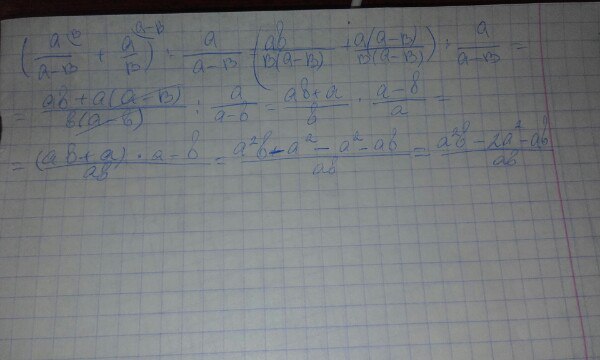 (a^{B}/(a-B) + a^{a-B}/B) : a/(a-B) (aB/(B(a-B)) + a(a-B)/(B(a-B))) : a/(a-B) =
= (ab + a(a-B))/(b(a-b)) : a/(a-b) = (ab+a)/b · (a-b)/a =
= (ab+a)·a-b/ab = (a²b-a²-a²-ab)/ab = (a²b-2a²-ab)/ab